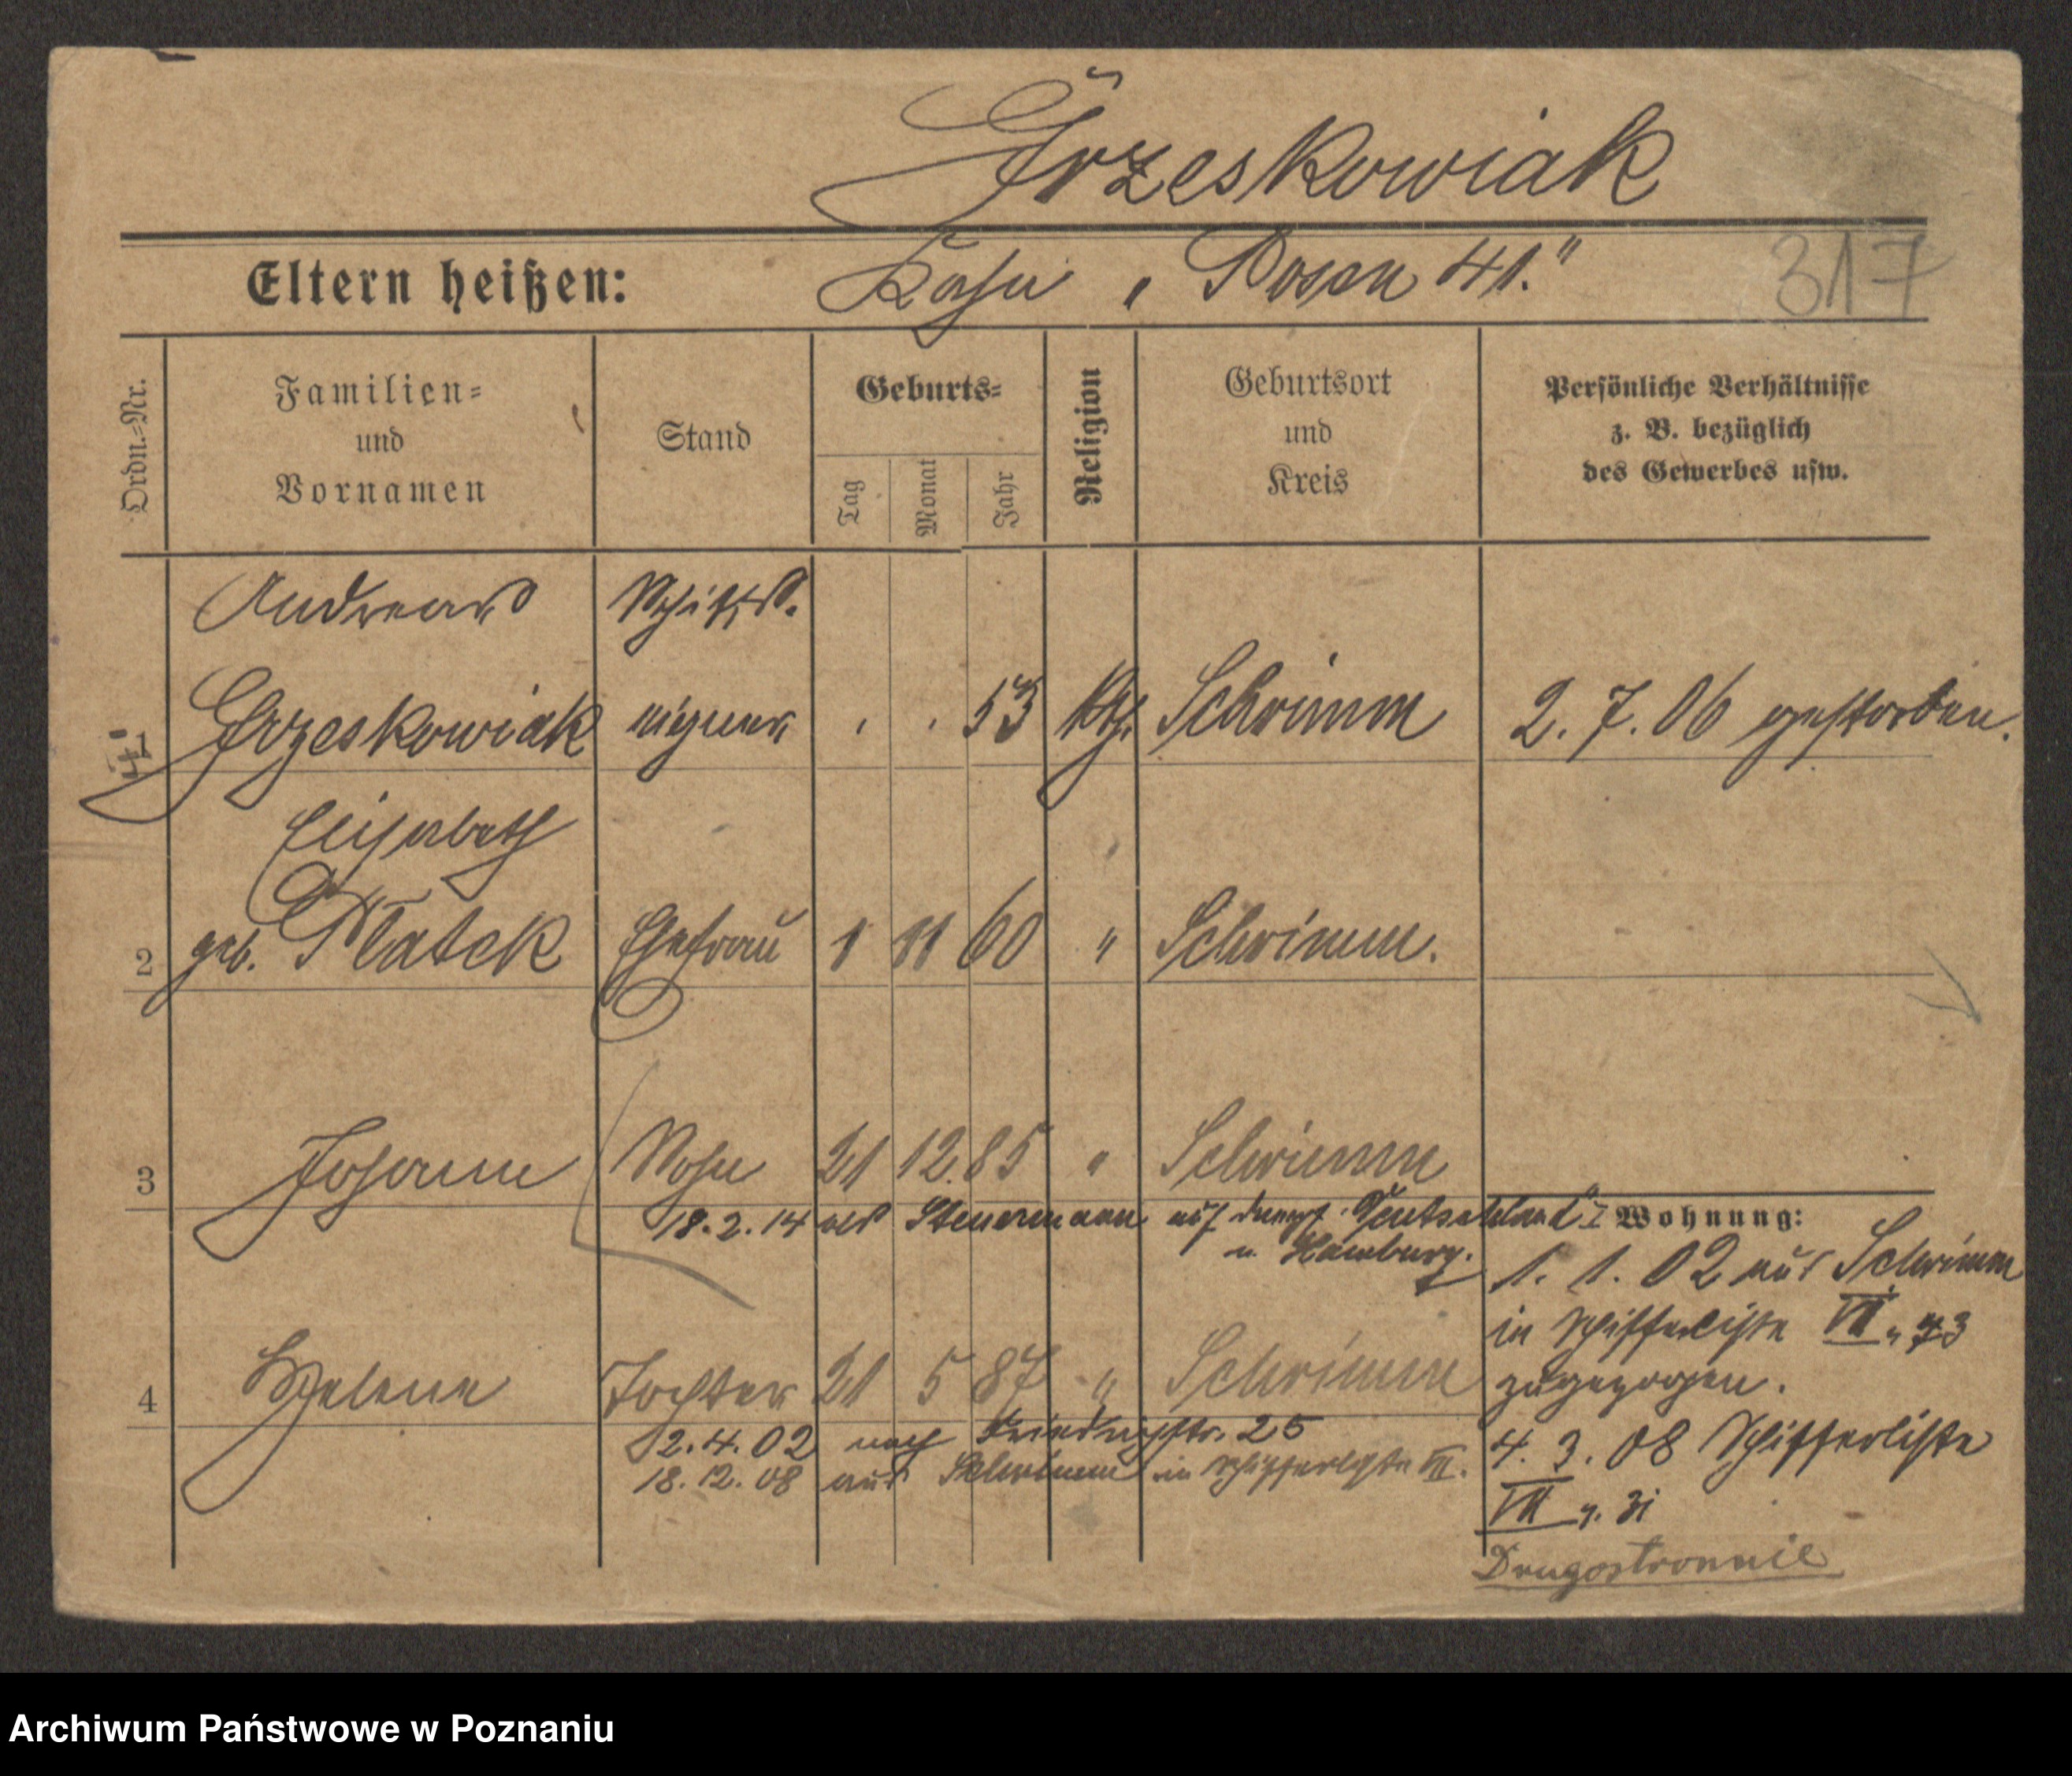 Grzeskowiak
Eltern heißen: Kahn „Posen 41." 317
Ordn.-Nr. Familien- und Vornamen Stand Geburts- Tag Monat Jahr Religion Geburtsort und Kreis Persönliche Verhältnisse z. B. bezüglich des Gewerbes usw.
Andreas Schiffs.
1 Grzeskowiak eigner . . 53 kth. Schrimm 2. 7. 06 gestorben.
Elisabeth
2 geb. Ratack Ehefrau 1 11 60 " Schrimm.
3 Johann Sohn 21 12. 85 " Schrimm
18. 2. 14 als Steuermann auf Dampf. „Deutschland" I
u. Hamburg.
Wohnung:
1. 1. 02 aus Schrimm
in Schifferliste VII, 73
zugezogen.
4 Helene Tochter 21 5 87 " Schrimm
2. 4. 02 nach Friedrichstr. 25
18. 12. 08 aus Schrimm in Schifferliste VII.
4. 3. 08 Schifferliste
VII
Drugostronnie
Archiwum Państwowe w Poznaniu